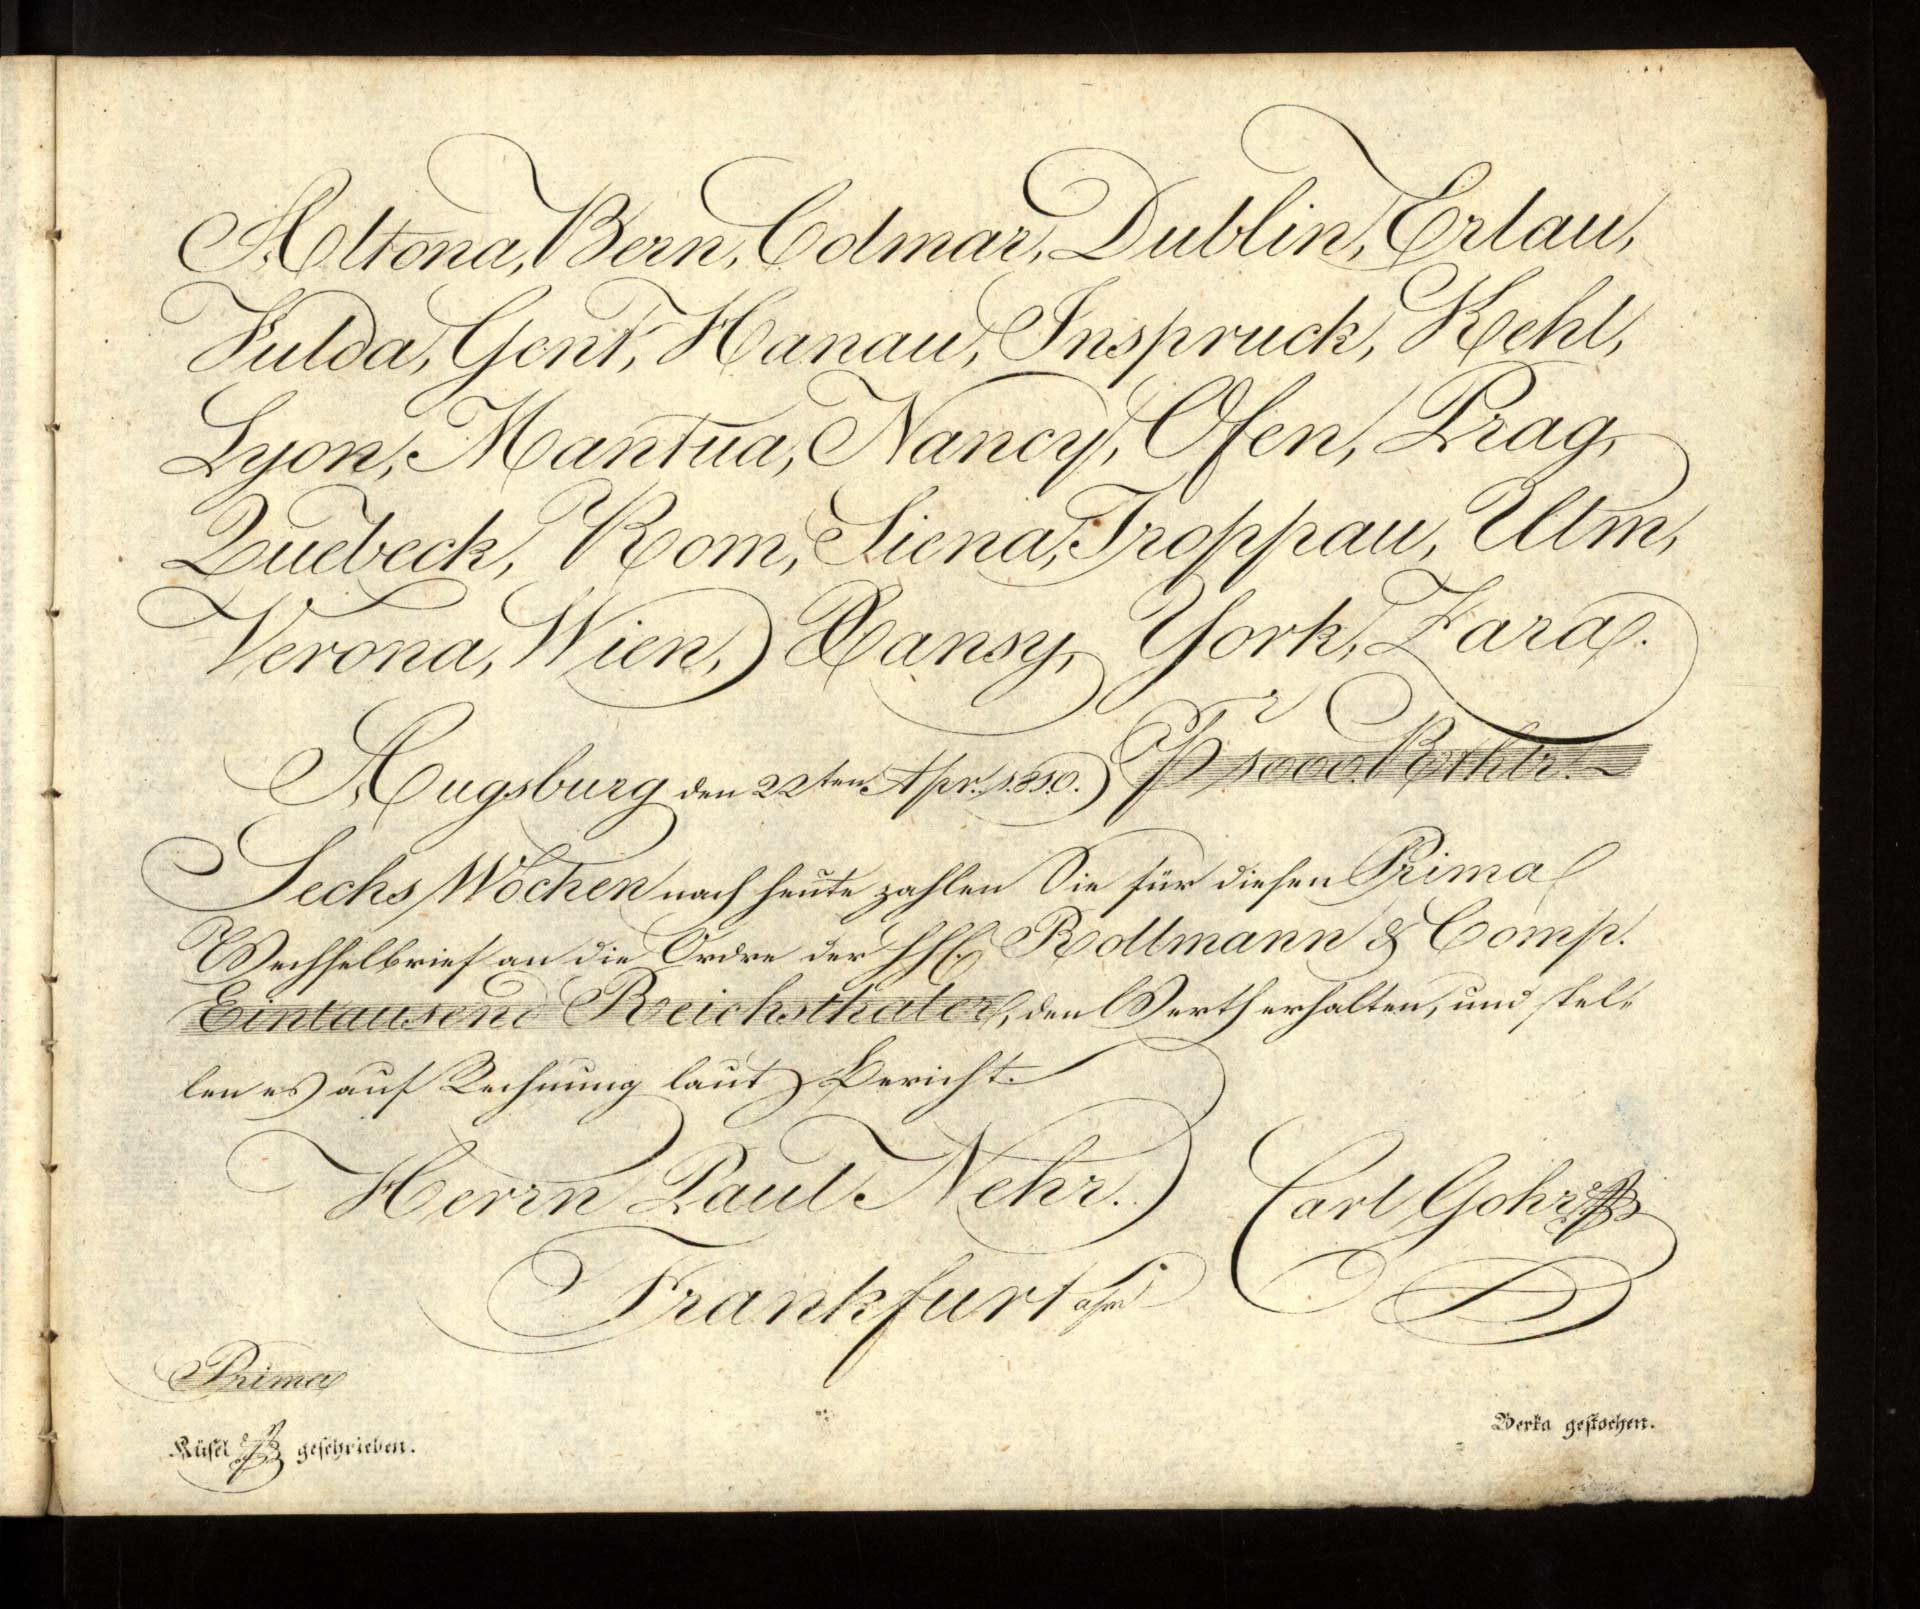 Altona, Bern, Colmar, Dublin, Erlau,
Fulda, Gent, Hanau, Inspruck, Kehl,
Lyon, Mantua, Nancy, Ofen, Prag,
Quebeck, Rom, Siena, Troppau, Ulm,
Verona, Wien, Xansy, York, Zara.
Augsburg den 22ten Apr. 1810. Pr 1000 Rthlr.
Sechs Wochen nach heute zahlen Sie für diesen Prima
Wechselbrief an die Ordre der HH. Rollmann & Comp.
Eintausend Reichsthaler, den Werth erhalten, und stel-
len es auf Rechnung laut Bericht.
Herrn Paul Nehr. Carl Gohr
Frankfurt a/m
Prima
Küsel geschrieben. Berka gestochen.